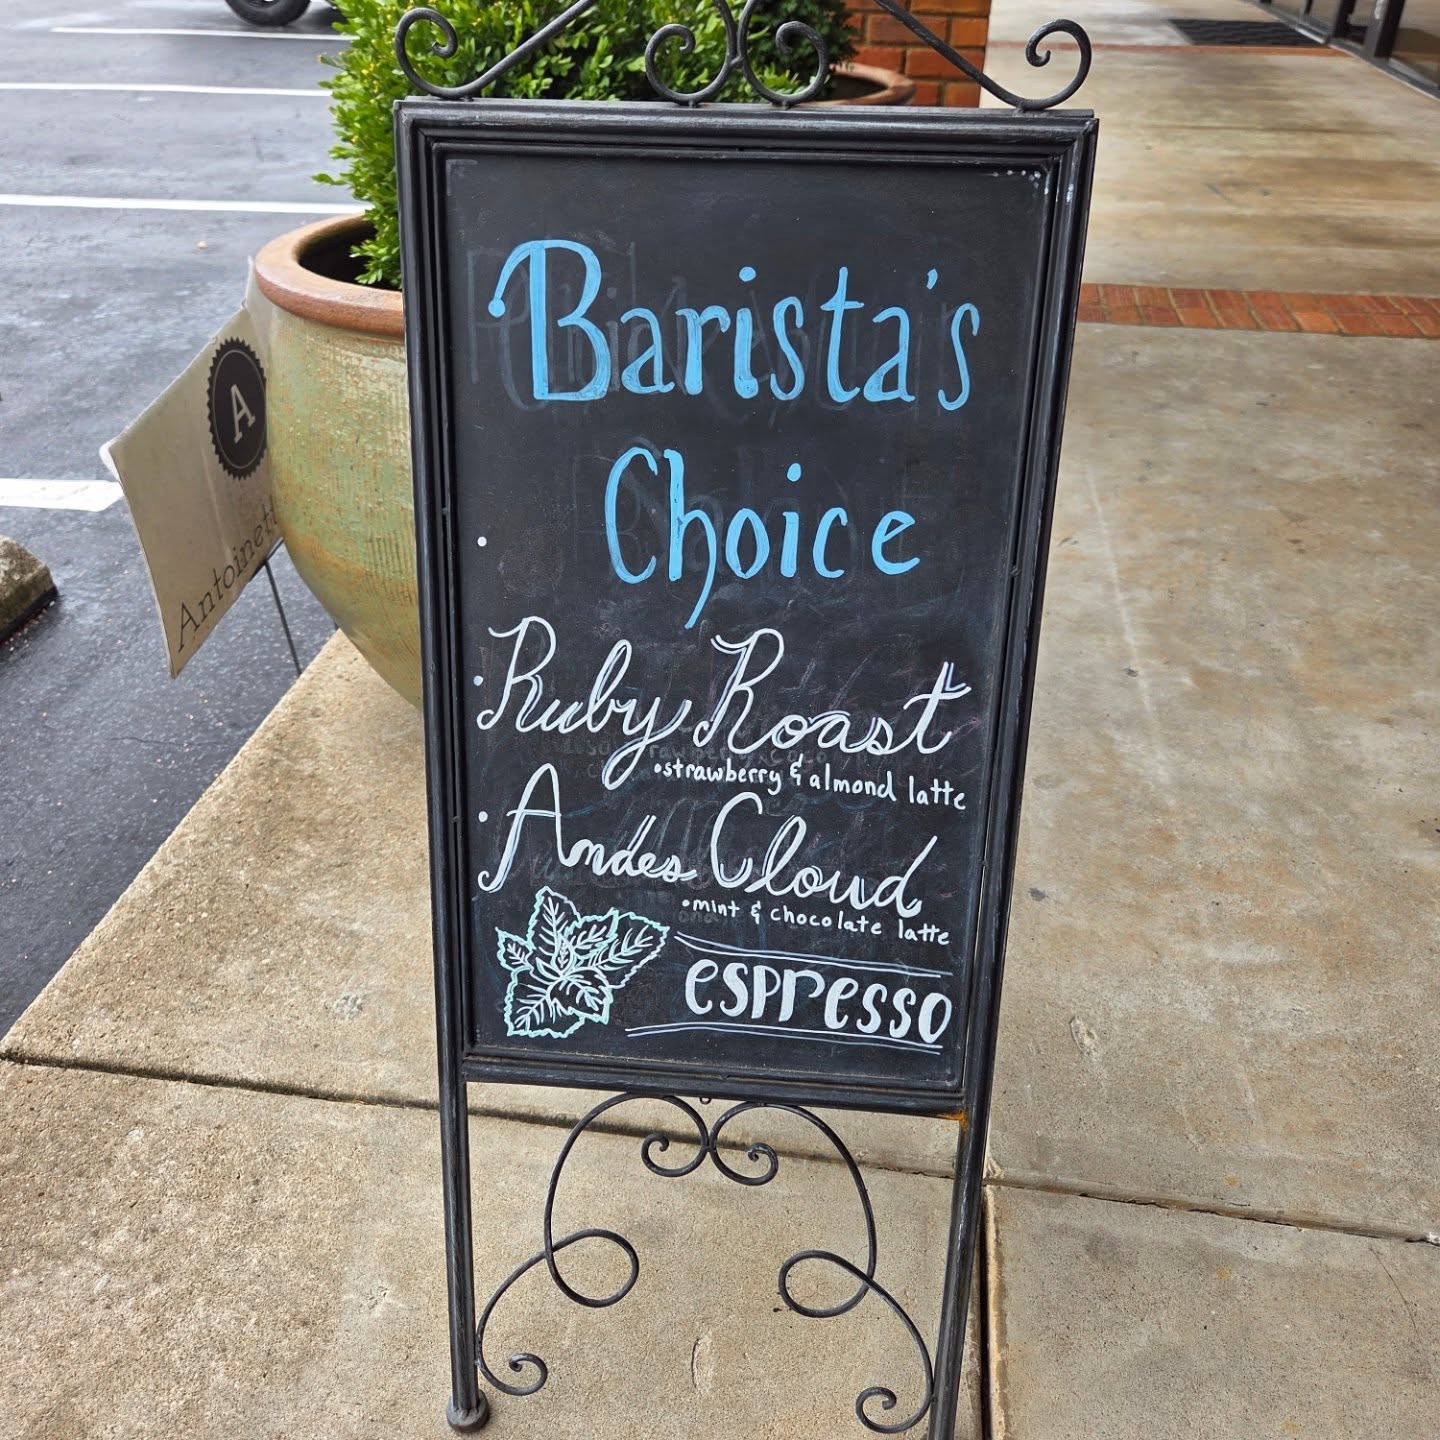 Barista's
Choice
• Ruby Roast
• strawberry & almond latte
• Andes Cloud
• mint & chocolate latte
espresso
A